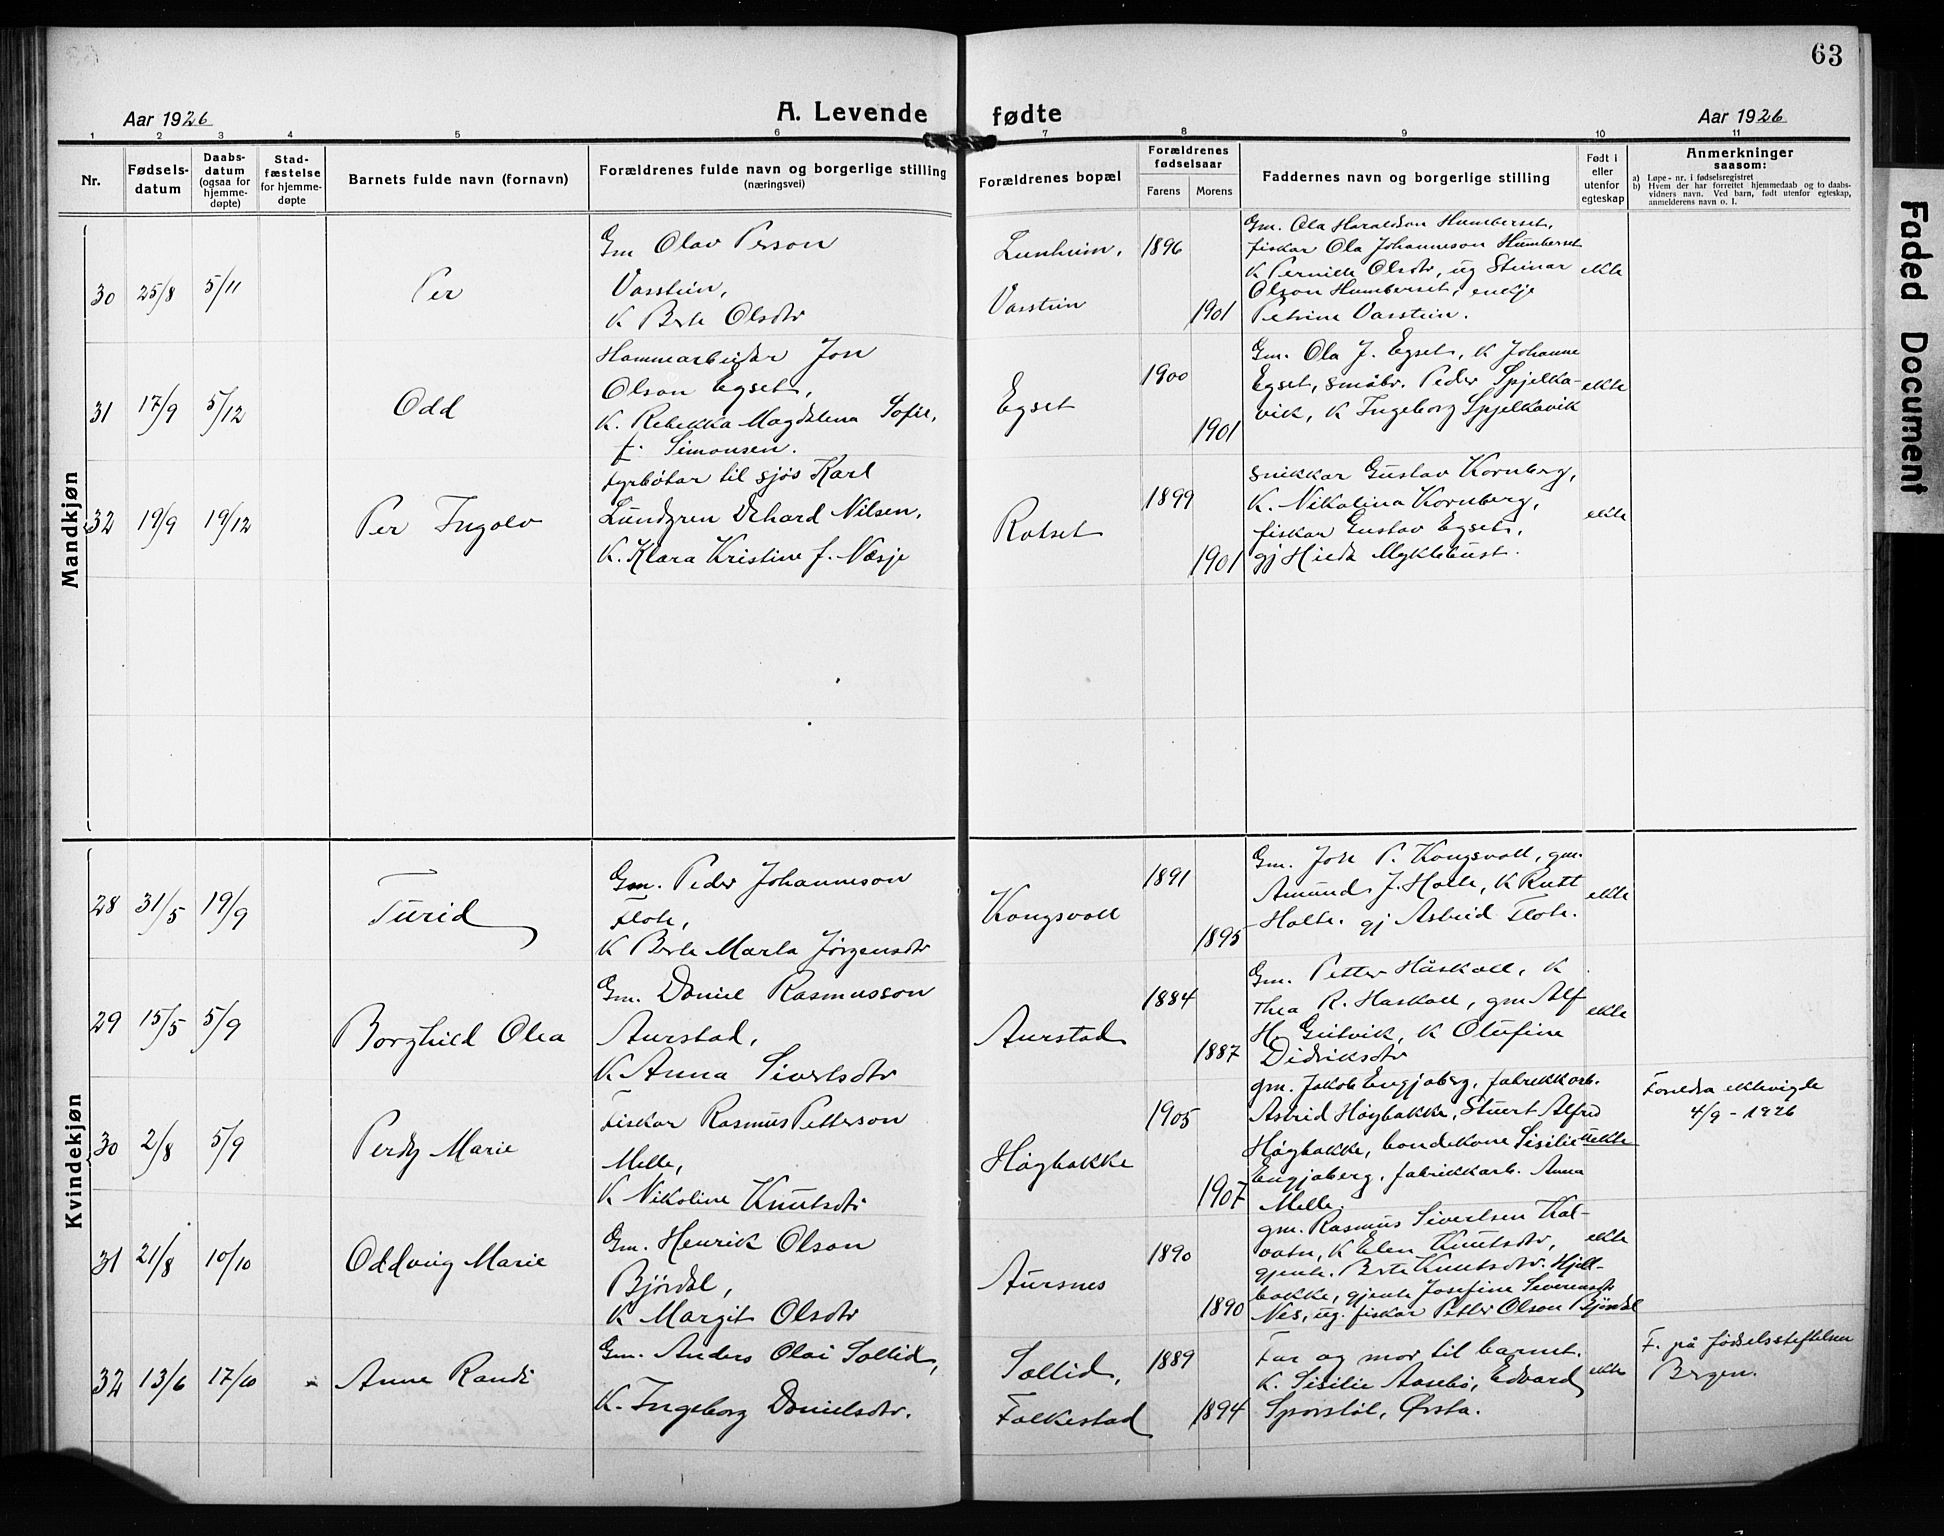 63
Aar 1926
A. Levende fødte
Aar 1926
1 2 3 4 5 6 7 8 9 10 11
Nr.
Fødsels-
datum
Daabs-
datum
(ogsaa for
hjemme-
døpte)
Stad-
fæstelse
for hjemme-
døpte
Barnets fulde navn (fornavn)
Forældrenes fulde navn og borgerlige stilling
(næringsvei)
Forældrenes bopæl
Forældrenes
fødselsaar
Farens Morens
Faddernes navn og borgerlige stilling
Født i
eller
utenfor
egteskap
Anmerkninger
saasom:
a) Løpe-nr. i fødselsregistret
b) Hvem der har forrettet hjemmedaab og to daabs-
vidners navn. Ved barn, født utenfor egteskap,
anmelderens navn o. l.
Mandkjøn
30 25/8 5/11 Per
Gm Olav Person
Vasstein,
K Berte Olsdtr
Lunheim,
Vasstein
1896
1901
Gm. Ola Haraldson Humberset,
fiskar Ola Johanneson Humberset
K Pernille Olsdtr, ug Steinar
Olson Humberset, enkje
Petrine Vasstein.
ekte
31 17/9 5/12 Odd
Hamnearbeidar Jon
Olson Egset,
K. Rebekka Magdalena Sofie,
f. Simonsen.
Egset
1900
1901
Gm. Ola J. Egset, K Johanne
Egset, småbr. Peder Spjelka-
vik, K Ingeborg Spjelkavik
ekte
32 19/9 19/12 Per Ingolv
fyrbøtar til sjøs Karl
Lundgren Dehard Nilsen,
K. Klara Kristine f. Næsje
Rotset
1899
1901
snikkar Gustav Kornberg,
K. Nikolina Kornberg,
fiskar Gustav Egset,
gj Hilda Myklebust.
ekte
Kvindekjøn
28 31/5 19/9 Turid
Gm. Peder Johanneson
Flote,
K Berte Marta Jørgensdtr
Kongsvoll
1891
1895
Gm. Jon P. Kongsvoll, gm.
Amund J. Holte, K Rutt
Holte. gj Astrid Flote.
ekte
29 15/5 5/9 Borghild Olea
Gm. Daniel Rasmusson
Aurstad,
K Anna Sivertsdtr
Aurstad
1884
1887
Gm. Petter Håskoll, K
Thea R. Haskoll, gm Alf
H. Geitvik, K Olufine
Didriksdtr
ekte
30 2/8 5/9 Perdy Marie
Fiskar Rasmus Petterson
Melle,
K Nikoline Knutsdtr
Høgbakke
1905
1907
gm. Jakob Engjaberg, fabrikkarb.
Astrid Høgbakke, Stuert Alfred
Høgbakke, bondekone Sisilie
Engjaberg, fabrikkarb. Anna
Melle.
uekte
Foreldra ektevigde
4/9-1926
31 21/8 10/10 Oddveig Marie
Gm. Henrik Olson
Bjørdal,
K Margit Olsdtr
Aursnes
1890
1890
gm. Rasmus Sivertsen Kal-
vatn, K Elen Knutsdtr,
gjente. Berte Knutsdtr. Hjell-
bakke, gjente Josefine Severensdtr
Nes, ug. fiskar Petter Olson Bjørdal
ekte
32 13/6 17/10 Anne Randi
Gm. Anders Olai Sollid,
K. Ingeborg Danielsdtr.
Sollid,
Folkestad
1889
1894
Far og mor til barnet.
K. Sisilie Aasebø, Edvard
Sporstøl, Ørsta.
ekte
F. på fødselsstiftelsen
Bergen.
Faded Document